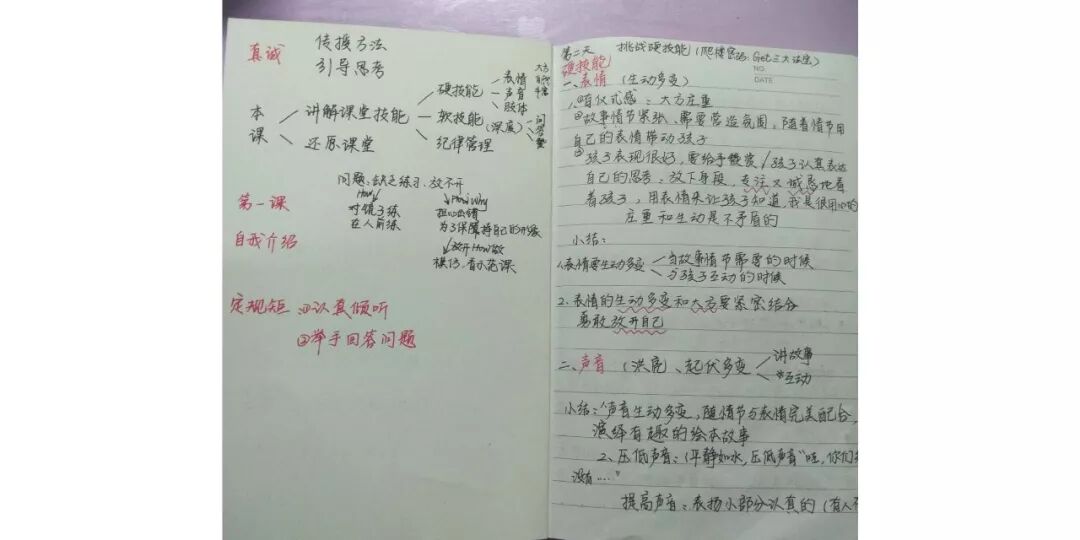 真诚 传授方法
引导思考
本课 讲解课堂技能 硬技能 表情
声音
肢体
软技能(深度) 问
答
赞
还原课堂 纪律管理
问题:缺乏练习、放不开
How How Why
对镜子练 担心出错
在人前练 为了保障持自己的形象
放开How做
模仿、看示范课
第一课
自我介绍
定规矩:①认真倾听
②举手回答问题
第二天 挑战硬技能(爬楼密码:Get三大法宝)
NO.
DATE
硬技能
一、表情(生动多变)
①有仪式感:大方庄重
②故事情节紧张、需要营造氛围,随着情节用
自己的表情带动孩子
③孩子表现很好,要给予赞赏/孩子认真表达
自己的思考,放下身段,专注又诚恳地看
着孩子,用表情来让孩子知道,我是很用心的
庄重和生动是不矛盾的
小结:
1、表情要生动多变 当故事情节需要的时候
与孩子互动的时候
2、表情的生动多变和大方要紧密结合
勇敢放开自己
二、声音(洪亮)、起伏多变 讲故事
*互动
小结:1、声音生动多变,随情节与表情完美配合,
演绎有趣的绘本故事
2、压低声音:(平静如水,压低声音"哇,你们
没有……"
提高声音:表扬小部分认真的(有人